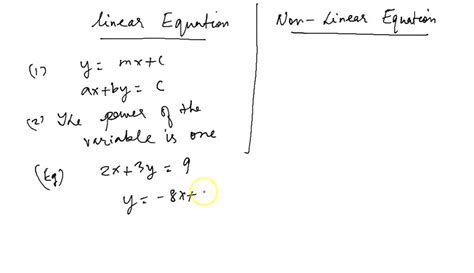 Linear Equation
(1) y = mx+c
ax+by = c
(2) The power of the
variable is one
(Eg) 2x+3y = 9
y = -8x+
Non-Linear Equation